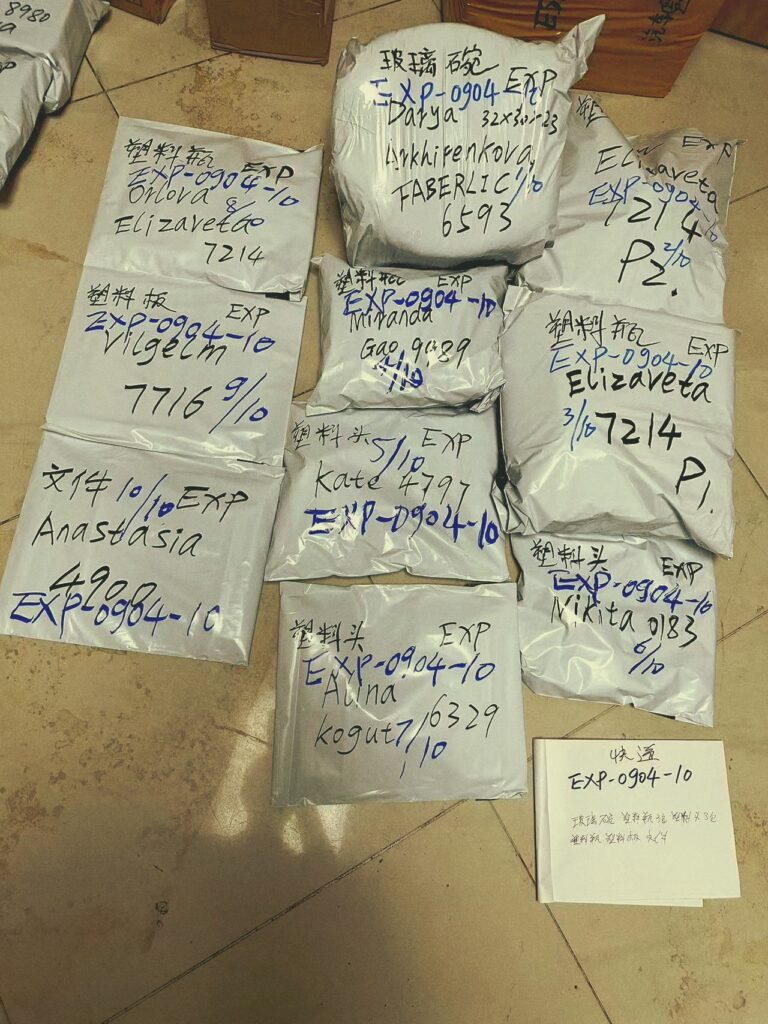 8980
EXP
玻璃碗 EXP
EXP-0904-10
Darya
Arkhipenkova
FABERLIC 1/10
6593
塑料瓶 EXP
EXP-0904-10
Orlova 8/10
Elizaveta
7214
塑
EXP
Elizaveta
EXP-0904-10
7214
P2. 2/10
塑料瓶 EXP
EXP-0904-10
Miranda
Gao 9989
4/10
塑料板 EXP
EXP-0904-10
Vilgelm
7716 9/10
塑料瓶 EXP
EXP-0904-10
Elizaveta
3/10 7214
P1.
塑料头 5/10 EXP
Kate 4797
EXP-0904-10
文件 10/10 EXP
Anastasia
4900
EXP-0904-10
塑料头 EXP
EXP-0904-10
Nikita 0183
6/10
塑料头 EXP
EXP-0904-10
Alina
kogut 7/10 6329
快递
EXP-0904-10
玻璃碗 塑料瓶3包 塑料头3包
塑料瓶 塑料板 文件